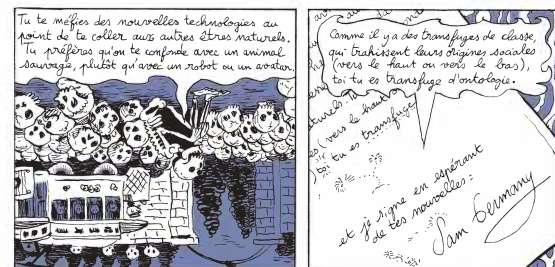 Tu te méfies des nouvelles technologies au
point de te coller aux autres êtres naturels.
Tu préfères qu'on te confonde avec un animal
sauvage, plutôt qu'avec un robot ou un avatar.
Comme il y a des transfuges de classe,
qui trahissent leurs origines sociales
(vers le haut ou vers le bas),
toi tu es transfuge d'ontologie.
turels.
(vers le haut o
toi tu es transfuge
et je signe en espérant
de tes nouvelles :
Sam Germany